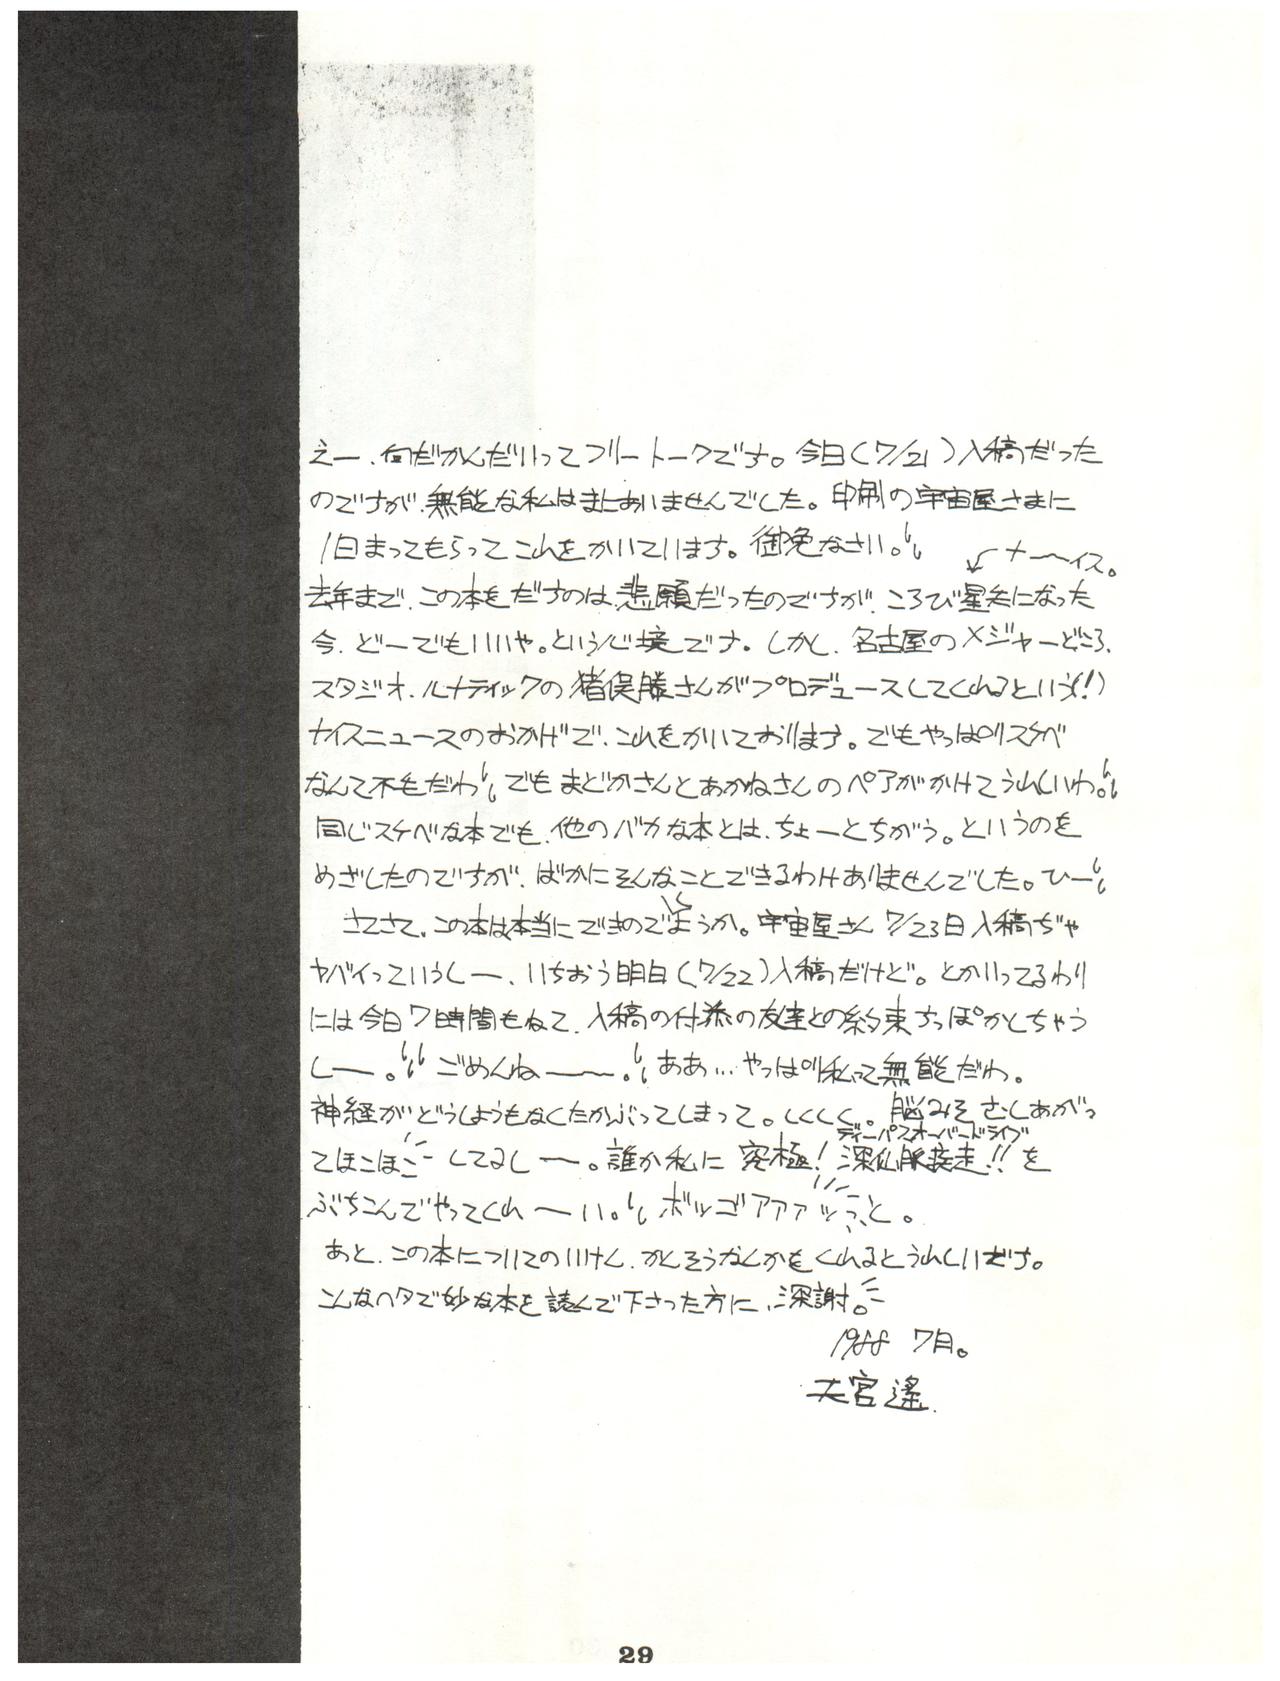 えー、何だかんだいってフリートークです。今日(7/21)入稿だった
のですが、無能な私はまにあいませんでした。印刷の宇宙屋さまに
1日まってもらってこれをかいています。御免なさい。
ナ〜〜イス。
去年まで、この本をだすのは、悲願だったのですが、ころび星矢になった
今、どーでもいいや。という心境です。しかし、名古屋のメジャーどころ、
スタジオ・ルナティックの猪俣勝さんがプロデュースしてくれるという(!)
ナイスニュースのおかげで、これをかいております。でもやっぱりスケベ
なんて不毛だわ でもまどかさんとあかねさんのペアがかけてうれしいわ。
同じスケベな本でも、他のバカな本とは、ちょーとちがう。というのを
めざしたのですが、ばかにそんなことできるわけありませんでした。ひー
さてさて、この本は本当にできのでしょうか。宇宙屋さん 7/23日入稿ぢゃ
ヤバイっていうしー、いちおう明日(7/22)入稿だけど。とかいってるわり
には今日7時間もねて、入稿の付添の友達との約束すっぽかしちゃう
しー。ごめんねー〜。ああ…やっぱり私って無能だわ。
神経がどうしようもなくたかぶってしまって。しくしく。脳みそさ、しあがっ
てほこほこしてるしー。誰か私に究極!深仏脈疾走!!を
ディーパスオーバードライブ
ぶちこんでやってくれ〜い。ボッゴアアァッっと。
あと、この本についてのいけん、かんそうなんかをくれるとうれしいだす。
こんなヘタで妙な本を読んで下さった方に、深謝。
1988 7月。
大宮遥.
29